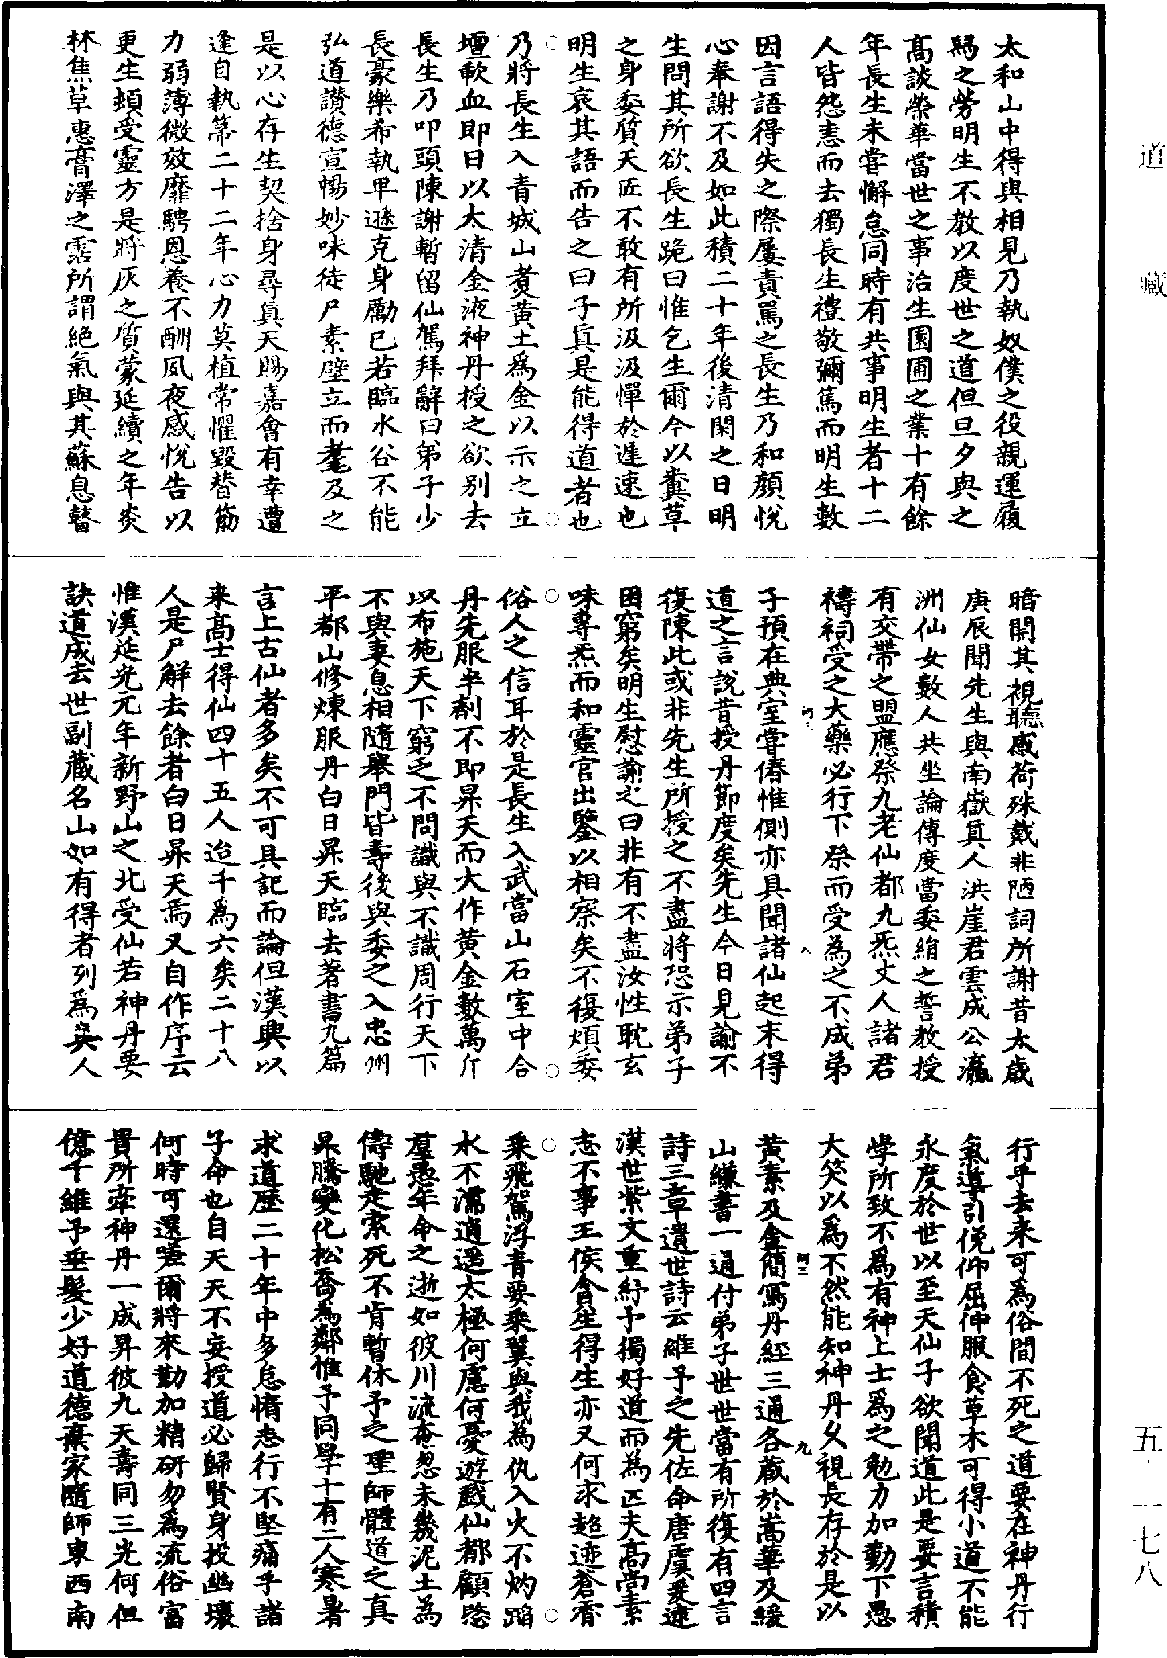 道藏
太和山中得與相見乃執奴僕之役親運履
屬之勞明生不教以度世之道但旦夕與之
高談榮華當世之事治生園圃之業十有餘
年長生未嘗懈怠同時有共事明生者十二
人皆怨恚而去獨長生禮敬彌篤而明生數
因言語得失之際屢責罵之長生乃和顏悅
心奉謝不及如此積二十年後清閑之日明
生問其所欲長生跪曰惟乞生爾今以糞草
之身委質天匠不敢有所汲汲憚於遲速也
明生哀其語而告之曰子真是能得道者也
乃將長生入青城山煑黃土爲金以示之立
壇歃血即日以太清金液神丹授之欲别去
長生乃叩頭陳謝暫留仙駕拜辭曰弟子少
長豪樂希執卑遜克身勵已若臨水谷不能
弘道讚德宣暢妙味徒尸素壁立而耄及之
是以心存生契捨身尋真天賜嘉會有幸遭
逢自執箒二十二年心力莫植常懼毀替筋
力弱薄微效靡騁恩養不酬夙夜感悅告以
更生頓受靈方是將灰之質蒙延續之年炎
林焦草惠膏澤之霑所謂絕氣與其蘇息瞽
暗開其視聽感荷殊戴非陋詞所謝昔太歲
庚辰聞先生與南嶽真人洪崖君雲成公瀛
洲仙女數人共坐論傳度當委絹之誓教授
有交帶之盟應祭九老仙都九炁丈人諸君
禱祠受之大藥必行下祭而受為之不成弟
子預在典室甞偆惟側亦具聞諸仙起末得
道之言說昔授丹節度矣先生今日見諭不
復陳此或非先生所授之不盡將恐示弟子
困窮矣明生慰諭之曰非有不盡汝性耽玄
味專炁而和靈官出鑒以相察矣不復煩委
俗人之信耳於是長生入武當山石室中合
丹先服半劑不即昇天而大作黃金數萬斤
以布施天下窮乏不問識與不識周行天下
不與妻息相隨舉門皆壽後與委之入忠州
平都山修煉服丹白日昇天臨去著書九篇
言上古仙者多矣不可具記而論但漢興以
来高士得仙四十五人迨千爲六矣二十八
人是尸解去餘者白日昇天焉又自作序云
惟漢延光元年新野山之北受仙若神丹要
訣道成去世副藏名山如有得者列爲真人
行乎去来可為俗間不死之道要在神丹行
氣導引俛仰屈伸服食草木可得小道不能
永度於世以至天仙子欲聞道此是要言積
學所致不為有神上士爲之勉力加勤下愚
大笑以爲不然能知神丹久視長存於是以
黃素及金簡寫丹經三通各藏於嵩華及緩
山縑書一通付弟子世世當有所復有四言
詩三章遺世詩云維予之先佐命唐虞爰逮
漢世紫文重紆予獨好道而為匹夫高尚素
志不事王侯貪生得生亦又何求超迹蒼霄
乘飛駕浮青要乘翼與我為仇入火不灼蹈
水不濡逍遥太極何慮何憂遊戲仙都顧愍
羣愚年命之逝如彼川流奄忽未幾泥土為
儔馳走索死不肯暫休予之聖師體道之真
昇騰變化松喬為鄰惟予同學十有二人寒暑
求道歷二十年中多怠惰志行不堅痛乎諸
子命也自天天不妄授道必歸賢身投幽壤
何時可還嗟爾將來勤加精研勿為流俗富
貴所牽神丹一成昇彼九天壽同三光何但
億千維予垂髮少好道德棄家隨師東西南
五一七八